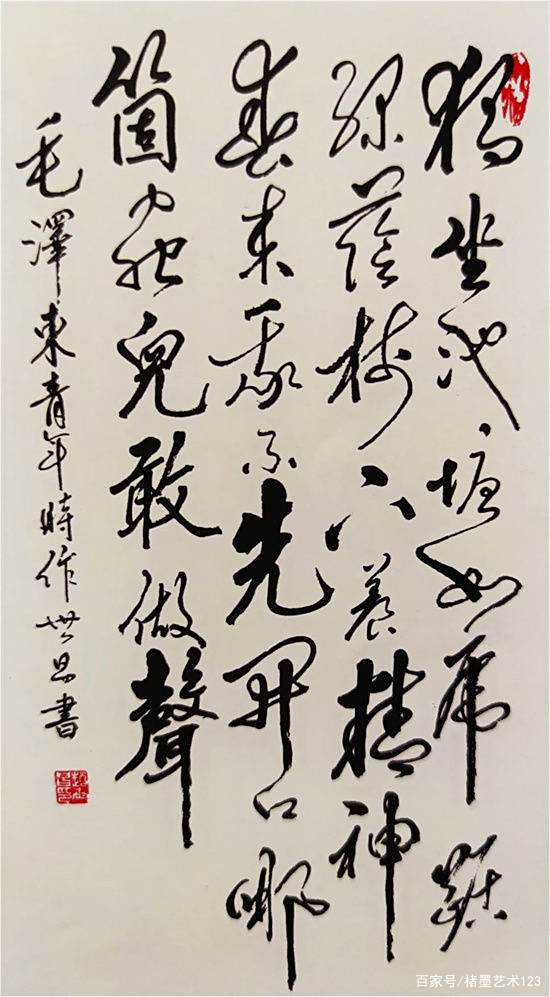 獨坐池塘如虎踞
綠蔭树下養精神
春来我不先开口哪
箇虫兒敢做聲
毛澤東青年時作世昌書
百家号/楮墨艺术123